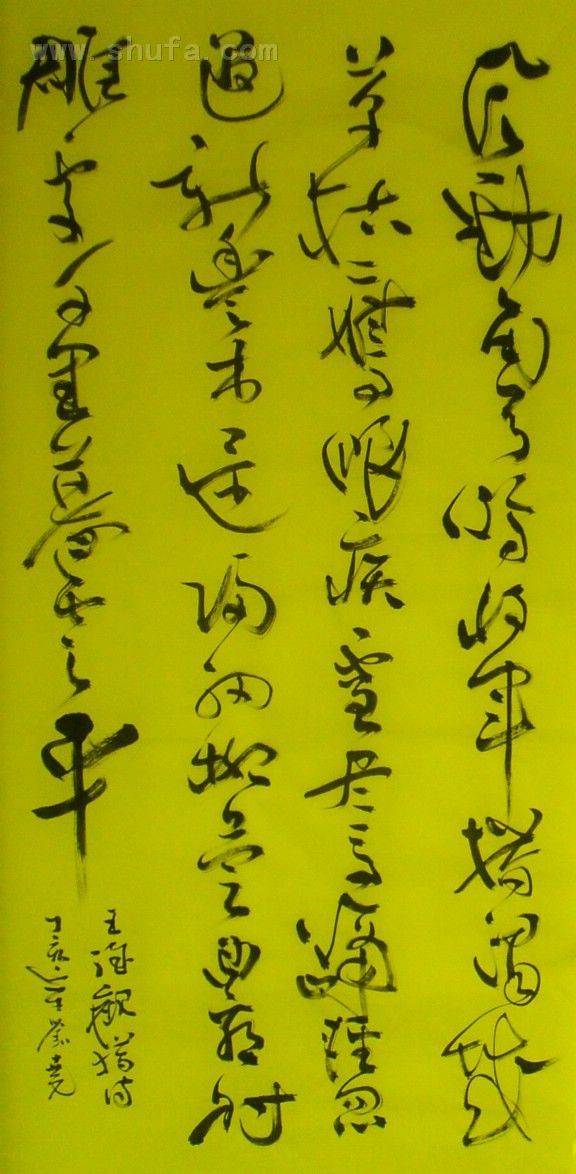 www.shufa.com
风劲角弓鳴将軍猎渭城
草枯鷹眼疾雪尽馬蹄輕忽
過新豐市還歸細柳營回看射
雕處千里暮雲平
王維觀猎诗
丁亥年